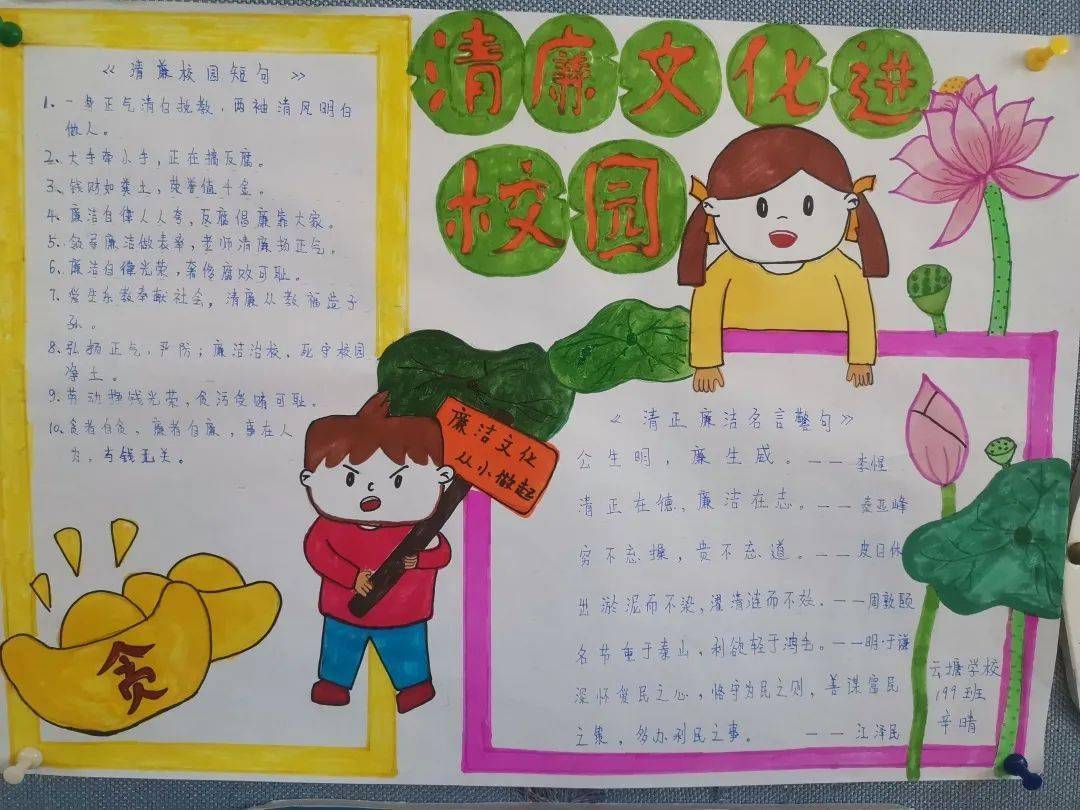 清廉文化进
校园
《清廉校园短句》
1、一身正气清白执教，两袖清风明白
做人。
2、大手牵小手，正在搞反腐。
3、钱财如粪土，荣誉值千金。
4、廉洁自律人人夸，反腐倡廉靠大家。
5、领导廉洁做表率，老师清廉扬正气。
6、廉洁自律光荣，奢侈腐败可耻。
7、爱生乐教奉献社会，清廉从教福益子
孙。
8、弘扬正气，严防；廉洁治校，死守校园
净土。
9、劳动挣钱光荣，贪污受贿可耻。
10、贪者自贪，廉者自廉，事在人
为，有钱无关。
廉洁文化
从小做起
贪
《清正廉洁名言警句》
公生明，廉生威。——李惺
清正在德，廉洁在志。——秦亚峰
穷不忘操，贵不忘道。——皮日休
出淤泥而不染，濯清涟而不妖。——周敦颐
名节重于泰山，利欲轻于鸿毛。——明·于谦
深怀爱民之心，恪守为民之则，善谋富民
之策，多办利民之事。——江泽民
云塘学校
199班
辛晴